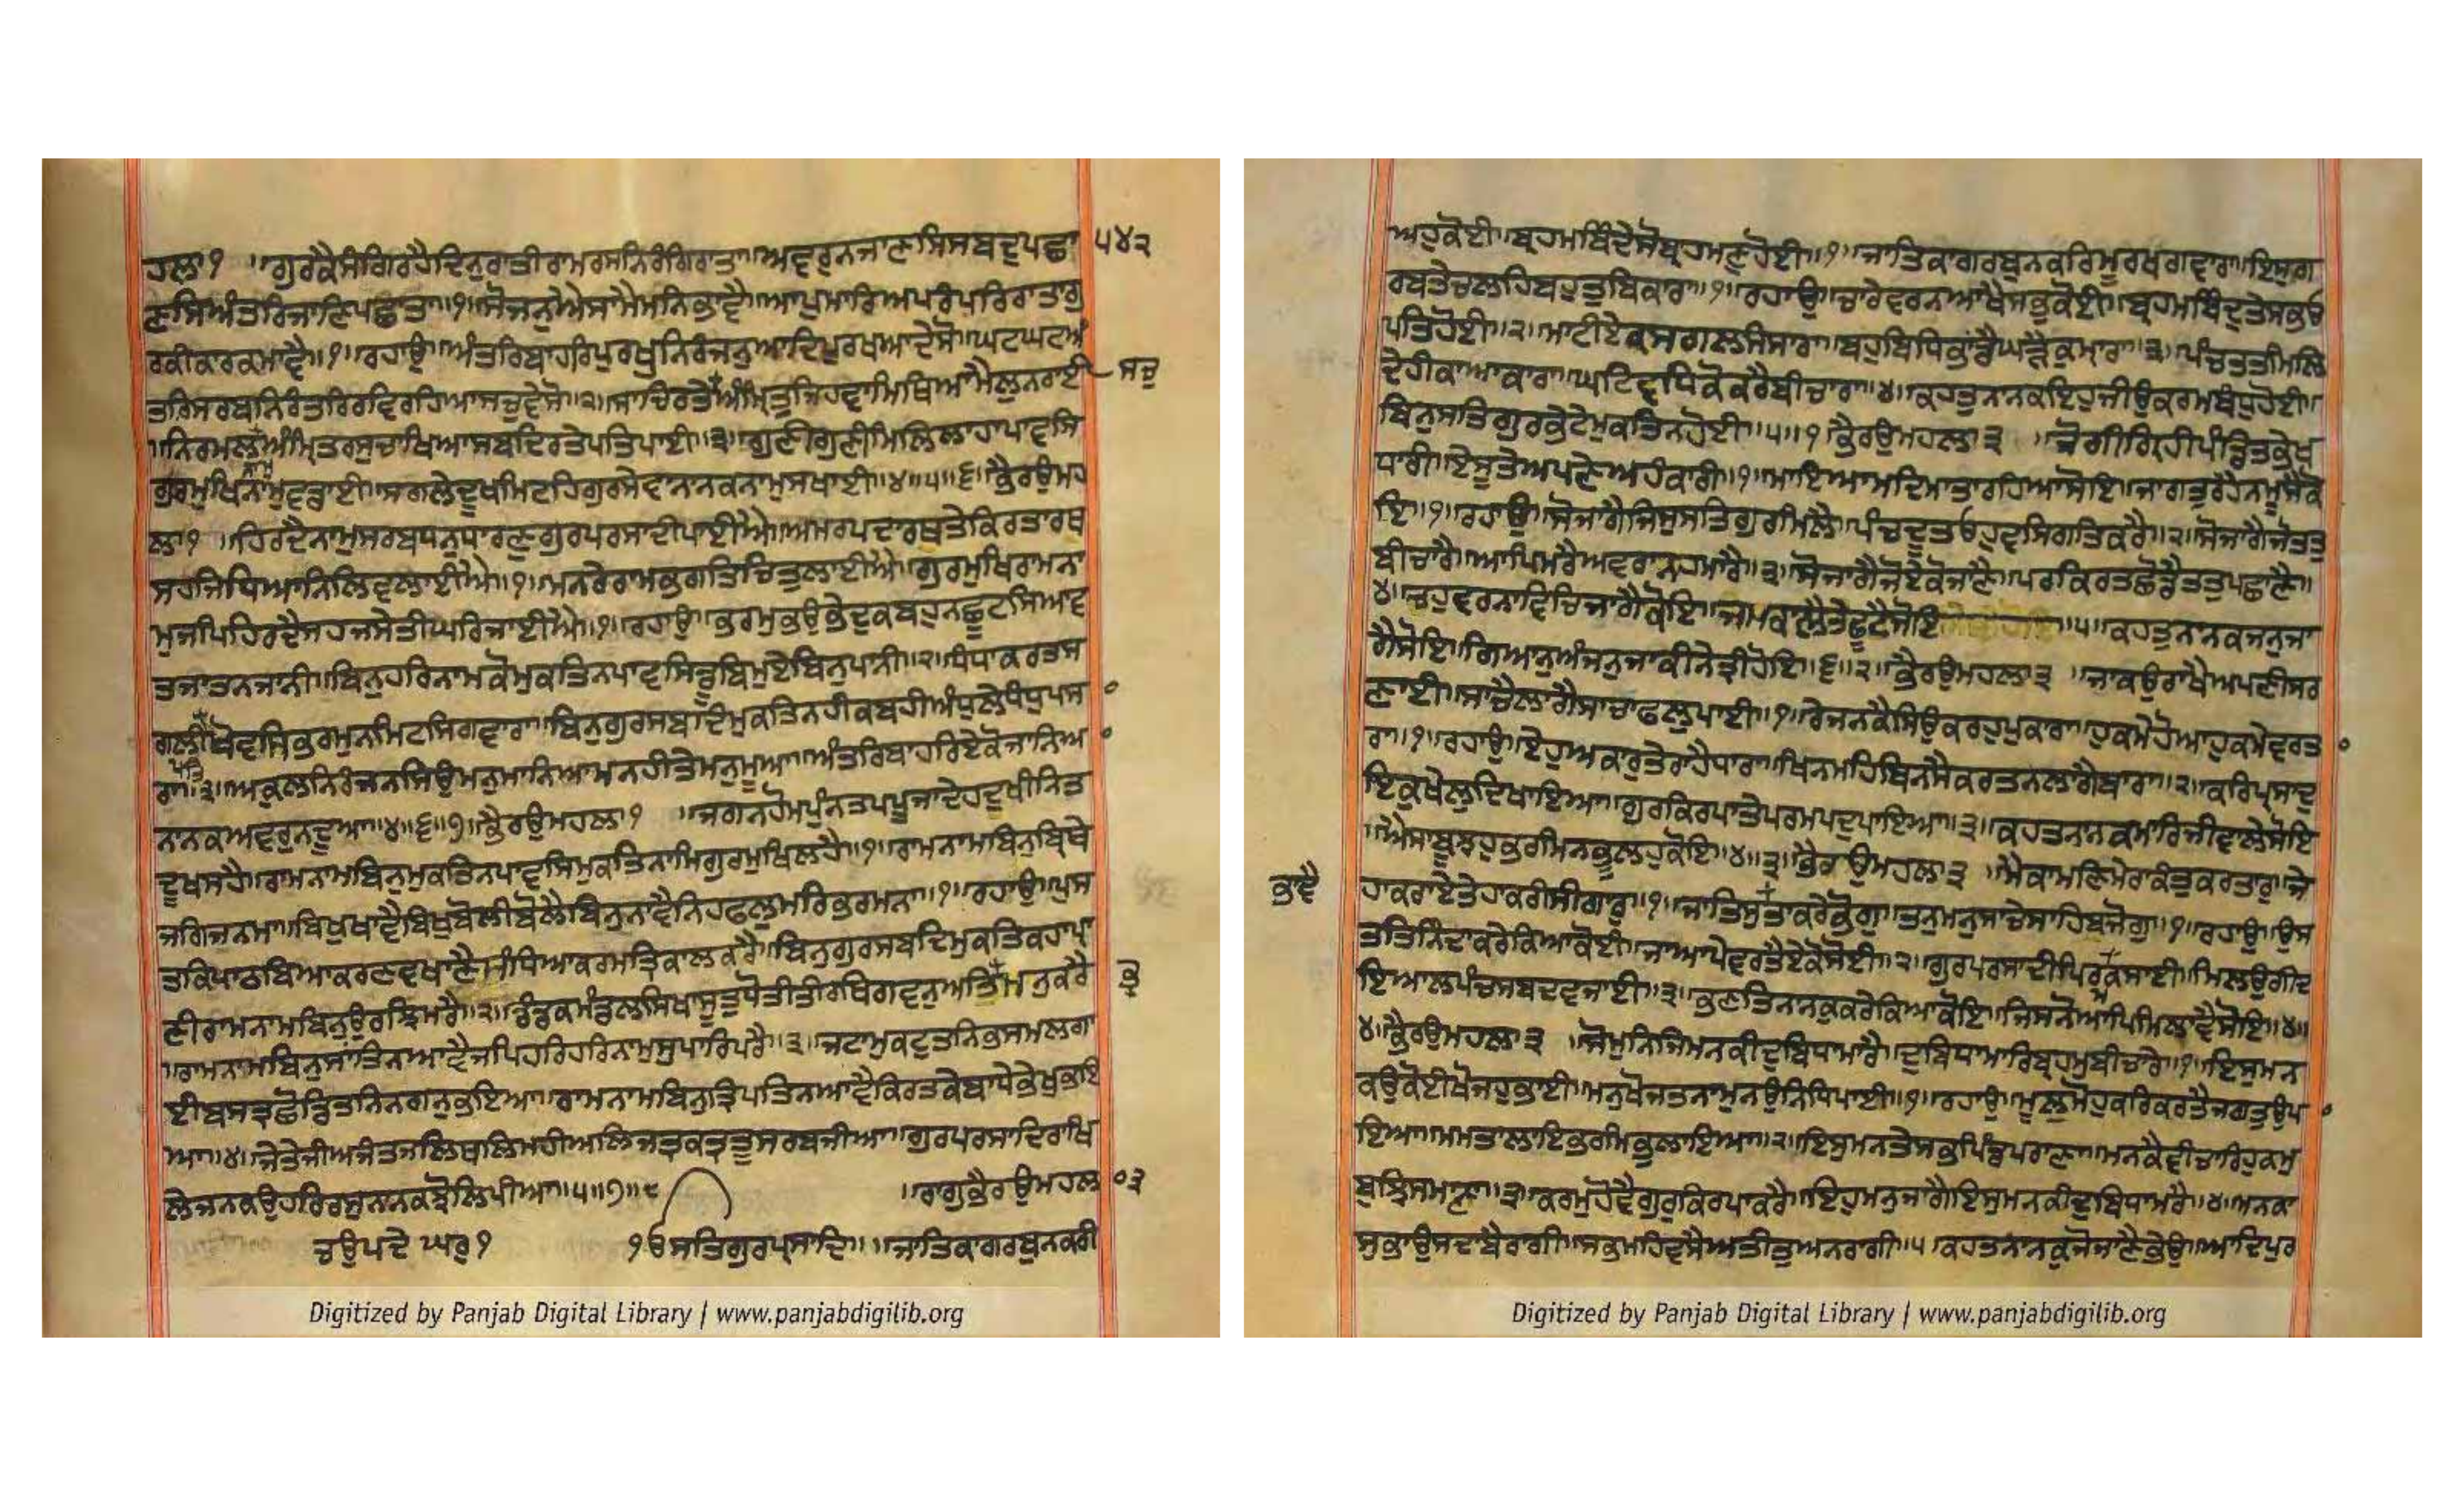 ਹਲਾ੧ ॥ਗੁਰਕੈਸੰਗਿਰਹੈਦਿਨੁਰਾਤੀਰਾਮਰਸਨਿਰੰਗਿਰਾਤਾ॥ਅਵਰੁਨਜਾਣਸਿਸਬਦੁਪਛਾ ੫੪੨
ਣਸਿਅੰਤਰਿਜਾਣਿਪਛਾਤਾ॥੧॥ਸੋਜਨੁਐਸਾਮੈਮਨਿਭਾਵੈ॥ਆਪੁਮਾਰਿਅਪਰੰਪਰਿਰਾਤਾਗੁ
ਰਕੀਕਾਰਕਮਾਵੈ॥੧॥ਰਹਾਉ॥ਅੰਤਰਿਬਾਹਰਿਪੁਰਖੁਨਿਰੰਜਨੁਆਦਿਪੁਰਖਆਦੇਸੋ॥ਘਟਘਟਅੰ
ਤਰਿਸਰਬਨਿਰੰਤਰਿਰਵਿਰਹਿਆਸਚੁਵੇਸੋ॥੨॥ਸਾਚਿਰਤੇਅੰਮ੍ਰਿਤੁਜਿਹਵਾਮਿਥਿਆਮੈਲੁਨਰਾਈ ਸਚੁ
॥ਨਿਰਮਲਅੰਮ੍ਰਿਤਰਸੁਚਾਖਿਆਸਬਦਿਰਤੇਪਤਿਪਾਈ॥੩॥ਗੁਣੀਗੁਣੀਮਿਲਿਲਾਹਾਪਾਵਸਿ
ਗੁਰਮੁਖਿਨਾਮੁਵਡਾਈ॥ਸਗਲੇਦੂਖਮਿਟਹਿਗੁਰਸੇਵਾਨਾਨਕਨਾਮੁਸਖਾਈ॥੪॥੫॥੬॥ਭੈਰਉਮਹ
ਲਾ੧ ॥ਹਿਰਦੈਨਾਮੁਸਰਬਧਨੁਧਾਰਣੁਗੁਰਪਰਸਾਦੀਪਾਈਐ॥ਅਮਰਪਦਾਰਥਤੇਕਿਰਤਾਰਥ
ਸਹਜਿਧਿਆਨਿਲਿਵਲਾਈਐ॥੧॥ਮਨਰੇਰਾਮਭਗਤਿਚਿਤੁਲਾਈਐ॥ਗੁਰਮੁਖਿਰਾਮਨਾ
ਮੁਜਪਿਹਿਰਦੈਸਹਜਸੇਤੀਘਰਿਜਾਈਐ॥੧॥ਰਹਾਉ॥ਭਰਮੁਭਉਭੇਦੁਕਬਹੁਨਛੂਟਸਿਆਵ
ਤਜਾਤਨਜਾਨੀ॥ਬਿਨੁਹਰਿਨਾਮਕੋਮੁਕਤਿਨਪਾਵਸਿਡੂਬਿਮੁਏਬਿਨੁਪਾਨੀ॥੨॥ਧੰਧਾਕਰਤਸ
ਗਲੀਖੋਵਸਿਭਰਮੁਨਮਿਟਸਿਗਵਾਰਾ॥ਬਿਨੁਗੁਰਸਬਦਿਮੁਕਤਿਨਹੀਕਬਹੀਅੰਧੁਲੇਧੰਧੁਪਸ ੦
ਪਤਿ
ਰਾ॥੩॥ਅਕੁਲਨਿਰੰਜਨਸਿਉਮਨੁਮਾਨਿਆਮਨਹੀਤੇਮਨੁਮੂਆ॥ਅੰਤਰਿਬਾਹਰਿਏਕੋਜਾਨਿਅ ੦
ਨਾਨਕਅਵਰੁਨਦੂਆ॥੪॥੬॥੭॥ਭੈਰਉਮਹਲਾ੧ ॥ਜਗਨਹੋਮਪੁੰਨਤਪਪੂਜਾਦੇਹਦੁਖੀਨਿਤ
ਦੂਖਸਹੈ॥ਰਾਮਨਾਮਬਿਨੁਮੁਕਤਿਨਪਾਵਸਿਮੁਕਤਿਨਾਮਿਗੁਰਮੁਖਿਲਹੈ॥੧॥ਰਾਮਨਾਮਬਿਨੁਬਿਰਥੇ
ਜਗਿਜਨਮਾ॥ਬਿਖੁਖਾਵੈਬਿਖੁਬੋਲੀਬੋਲੈਬਿਨੁਨਾਵੈਨਿਹਫਲੁਮਰਿਭਰਮਨਾ॥੧॥ਰਹਾਉ॥ਪੁਸ
ਤਕਿਪਾਠਬਿਆਕਰਣਵਖਾਣੈਸੰਧਿਆਕਰਮਤਿਕਾਲਕਰੈ॥ਬਿਨੁਗੁਰਸਬਦਿਮੁਕਤਿਕਹਾਪ੍ਰਾ
ਣੀਰਾਮਨਾਮਬਿਨੁਉਰਝਿਮਰੈ॥੨॥ਡੰਡਕਮੰਡਲਸਿਖਾਸੂਤੁਧੋਤੀਤੀਰਥਿਗਵਨੁਅਤਿਭ੍ਰਮਨੁਕਰੈ ਭ੍ਰ
॥ਰਾਮਨਾਮਬਿਨੁਸਾਂਤਿਨਆਵੈਜਪਿਹਰਿਹਰਿਨਾਮੁਸੁਪਾਰਿਪਰੈ॥੩॥ਜਟਾਮੁਕਟੁਤਨਿਭਸਮਲਗਾ
ਈਬਸਤ੍ਰਛੋਡਿਤਨਿਨਗਨੁਭਇਆ॥ਰਾਮਨਾਮਬਿਨੁਤ੍ਰਿਪਤਿਨਆਵੈਕਿਰਤਕੇਬਾਧੇਭੇਖੁਭਇ
ਆ॥੪॥ਜੇਤੇਜੀਅਜੰਤਜਲਿਥਲਿਮਹੀਅਲਿਜਤ੍ਰਕਤ੍ਰਤੂਸਰਬਜੀਆ॥ਗੁਰਪਰਸਾਦਿਰਾਖਿ
ਲੇਜਨਕਉਹਰਿਰਸੁਨਾਨਕਝੋਲਿਪੀਆ॥੫॥੭॥੮ ॥ਰਾਗੁਭੈਰਉਮਹਲਾ ੦੩
ਚਉਪਦੇ ਘਰੁ੧ ੴਸਤਿਗੁਰਪ੍ਰਸਾਦਿ॥ ॥ਜਾਤਿਕਾਗਰਬੁਨਕਰੀ
Digitized by Panjab Digital Library | www.panjabdigilib.org
ਅਹੁਕੋਈ॥ਬ੍ਰਹਮਬਿੰਦੇਸੋਬ੍ਰਹਮਣੁਹੋਈ॥੧॥ਜਾਤਿਕਾਗਰਬੁਨਕਰਿਮੂਰਖਗਵਾਰਾ॥ਇਸੁਗ
ਰਬਤੇਚਲਹਿਬਹੁਤੁਬਿਕਾਰਾ॥੧॥ਰਹਾਉ॥ਚਾਰੇਵਰਨਆਖੈਸਭੁਕੋਈ॥ਬ੍ਰਹਮਬਿੰਦੁਤੇਸਭਓ
ਪਤਿਹੋਈ॥੨॥ਮਾਟੀਏਕਸਗਲਸੰਸਾਰਾ॥ਬਹੁਬਿਧਿਭਾਂਡੈਘੜੈਕੁਮ੍ਹਾਰਾ॥੩॥ਪੰਚਤਤੁਮਿਲਿ
ਦੇਹੀਕਾਆਕਾਰਾ॥ਘਟਿਵਧਿਕੋਕਰੈਬੀਚਾਰਾ॥੪॥ਕਹਤੁਨਾਨਕਇਹੁਜੀਉਕਰਮਬੰਧੁਹੋਈ॥
ਬਿਨੁਸਤਿਗੁਰਭੇਟੇਮੁਕਤਿਨਹੋਈ॥੫॥੧॥ਭੈਰਉਮਹਲਾ੩ ॥ਜੋਗੀਗ੍ਰਿਹੀਪੰਡਿਤਭੇਖ
ਧਾਰੀ॥ਏਸੂਤੇਅਪਣੇਅਹੰਕਾਰੀ॥੧॥ਮਾਇਆਮਦਿਮਾਤਾਰਹਿਆਸੋਇ॥ਜਾਗਤੁਰਹੈਨਮੂਸੈਕੋ
ਇ॥੧॥ਰਹਾਉ॥ਸੋਜਾਗੈਜਿਸੁਸਤਿਗੁਰੁਮਿਲੈ॥ਪੰਚਦੂਤਓਹੁਵਸਿਗਤਿਕਰੈ॥੨॥ਸੋਜਾਗੈਜੋਤਤੁ
ਬੀਚਾਰੈ॥ਆਪਿਮਰੈਅਵਰਾਨਹਮਾਰੈ॥੩॥ਸੋਜਾਗੈਜੋਏਕੋਜਾਣੈ॥ਪਰਕਿਰਤਛੋਡੈਤਤੁਪਛਾਣੈ॥
੪॥ਚਹੁਵਰਨਾਵਿਚਿਜਾਗੈਕੋਇ॥ਜਮਕਾਲੈਤੇਛੂਟੈਸੋਇ॥੫॥ਕਹਤੁਨਾਨਕਜਨੁਜਾ
ਗੈਸੋਇ॥ਗਿਆਨੁਅੰਜਨੁਜਾਕੀਨੇਤ੍ਰੀਹੋਇ॥੬॥੨॥ਭੈਰਉਮਹਲਾ੩ ॥ਜਾਕਉਰਾਖੈਅਪਣੀਸਰ
ਣਾਈ॥ਸਾਚੈਲਾਗੈਸਾਚਾਫਲੁਪਾਈ॥੧॥ਰੇਜਨਕੈਸਿਉਕਰਹੁਪੁਕਾਰਾ॥ਹੁਕਮੇਹੋਆਹੁਕਮੇਵਰਤ ੦
ਰਾ॥੧॥ਰਹਾਉ॥ਏਹੁਅਕਾਰੁਤੇਰਾਹੈਧਾਰਾ॥ਖਿਨਮਹਿਬਿਨਸੈਕਰਤਨਲਾਗੈਬਾਰਾ॥੨॥ਕਰਿਪ੍ਰਸਾਦੁ
ਇਕੁਖੇਲੁਦਿਖਾਇਆ॥ਗੁਰਕਿਰਪਾਤੇਪਰਮਪਦੁਪਾਇਆ॥੩॥ਕਹਤਨਾਨਕਮਾਰਿਜੀਵਾਲੇਸੋਇ
॥ਐਸਾਬੂਝਹੁਭਰਮਿਨਭੂਲਹੁਕੋਇ॥੪॥੩॥ਭੈਰਉਮਹਲਾ੩ ॥ਮੈਕਾਮਣਿਮੇਰਾਕੰਤੁਕਰਤਾਰੁ॥ਜੇ
ਭਾਵੈ
ਹਾਕਰਾਏਤੇਹਾਕਰੀਸੀਗਾਰੁ॥੧॥ਜਾਤਿਸੁਤਾਕਰੇਭੋਗੁ॥ਤਨੁਮਨੁਸਾਚੇਸਾਹਿਬਜੋਗੁ॥੧॥ਰਹਾਉ॥ਉਸ
ਤਤਿਨਿੰਦਾਕਰੇਕਿਆਕੋਈ॥ਜਾਆਪੇਵਰਤੈਏਕੋਸੋਈ॥੨॥ਗੁਰਪਰਸਾਦੀਪਿਰਮਕਸਾਈ॥ਮਿਲਉਗੀਦ
ਇਆਲਪੰਚਸਬਦਵਜਾਈ॥੩॥ਭਣਤਿਨਾਨਕੁਕਰੇਕਿਆਕੋਇ॥ਜਿਸਨੋਆਪਿਮਿਲਾਵੈਸੋਇ॥੪॥
੪॥ਭੈਰਉਮਹਲਾ੩ ॥ਸੋਮੁਨਿਜਿਮਨਕੀਦੁਬਿਧਾਮਾਰੈ॥ਦੁਬਿਧਾਮਾਰਿਬ੍ਰਹਮੁਬੀਚਾਰੇ॥੧॥ਇਸੁਮਨ
ਕਉਕੋਈਖੋਜਹੁਭਾਈ॥ਮਨੁਖੋਜਤਨਾਮੁਨਉਨਿਧਿਪਾਈ॥੧॥ਰਹਾਉ॥ਮੂਲੁਮੋਹੁਕਰਿਕਰਤੈਜਗਤੁਉਪ ੦
ਇਆ॥ਮਮਤਾਲਾਇਭਰਮਿਭੁਲਾਇਆ॥੨॥ਇਸੁਮਨਤੇਸਭਪਿੰਡਪਰਾਣਾ॥ਮਨਕੈਵੀਚਾਰਿਹੁਕਮੁ
ਬੁਝਿਸਮਾਣਾ॥੩॥ਕਰਮੁਹੋਵੈਗੁਰੁਕਿਰਪਾਕਰੈ॥ਇਹੁਮਨੁਜਾਗੈਇਸੁਮਨਕੀਦੁਬਿਧਾਮਰੈ॥੪॥ਮਨਕਾ
ਸੁਭਾਉਸਦਾਬੈਰਾਗੀ॥ਸਭਮਹਿਵਸੈਅਤੀਤੁਅਨਰਾਗੀ॥੫॥ਕਹਤਨਾਨਕੁਜੋਜਾਣੈਭੇਉ॥ਆਦਿਪੁਰ
Digitized by Panjab Digital Library | www.panjabdigilib.org